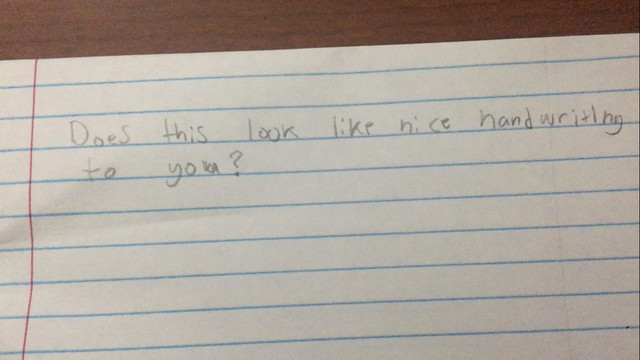 Does this look like nice handwriting
to you?